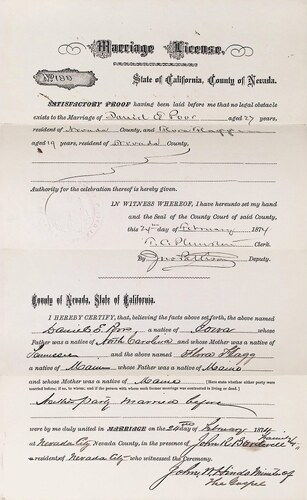 Marriage License.
No 180
State of California, County of Nevada.
SATISFACTORY PROOF having been laid before me that no legal obstacle
exists to the Marriage of Daniel E aged 27 years,
resident of Nevada County, and
aged 19 years, resident of Nevada County,
Authority for the celebration thereof is hereby given.
IN WITNESS WHEREOF, I have hereunto set my hand
and the Seal of the County Court of said County,
this 24th day of February 1874
Clerk.
By Jno Pattison Deputy.
County of Nevada, State of California.
I HEREBY CERTIFY, that, believing the facts above set forth, the above
named Daniel E. a native of Iowa whose
Father was a native of North Carolina and whose Mother was a native of
Tennessee and the above named Flora Flagg
a native of Maine whose Father was a native of Maine
and whose Mother was a native of Maine
Neither party married before
were by me duly united in MARRIAGE on the 24th day of February 1874
at Nevada City Nevada County, in the presence of John R
residents of Nevada City who witnessed the Ceremony.
John N Hinds Minister of
the Gospel